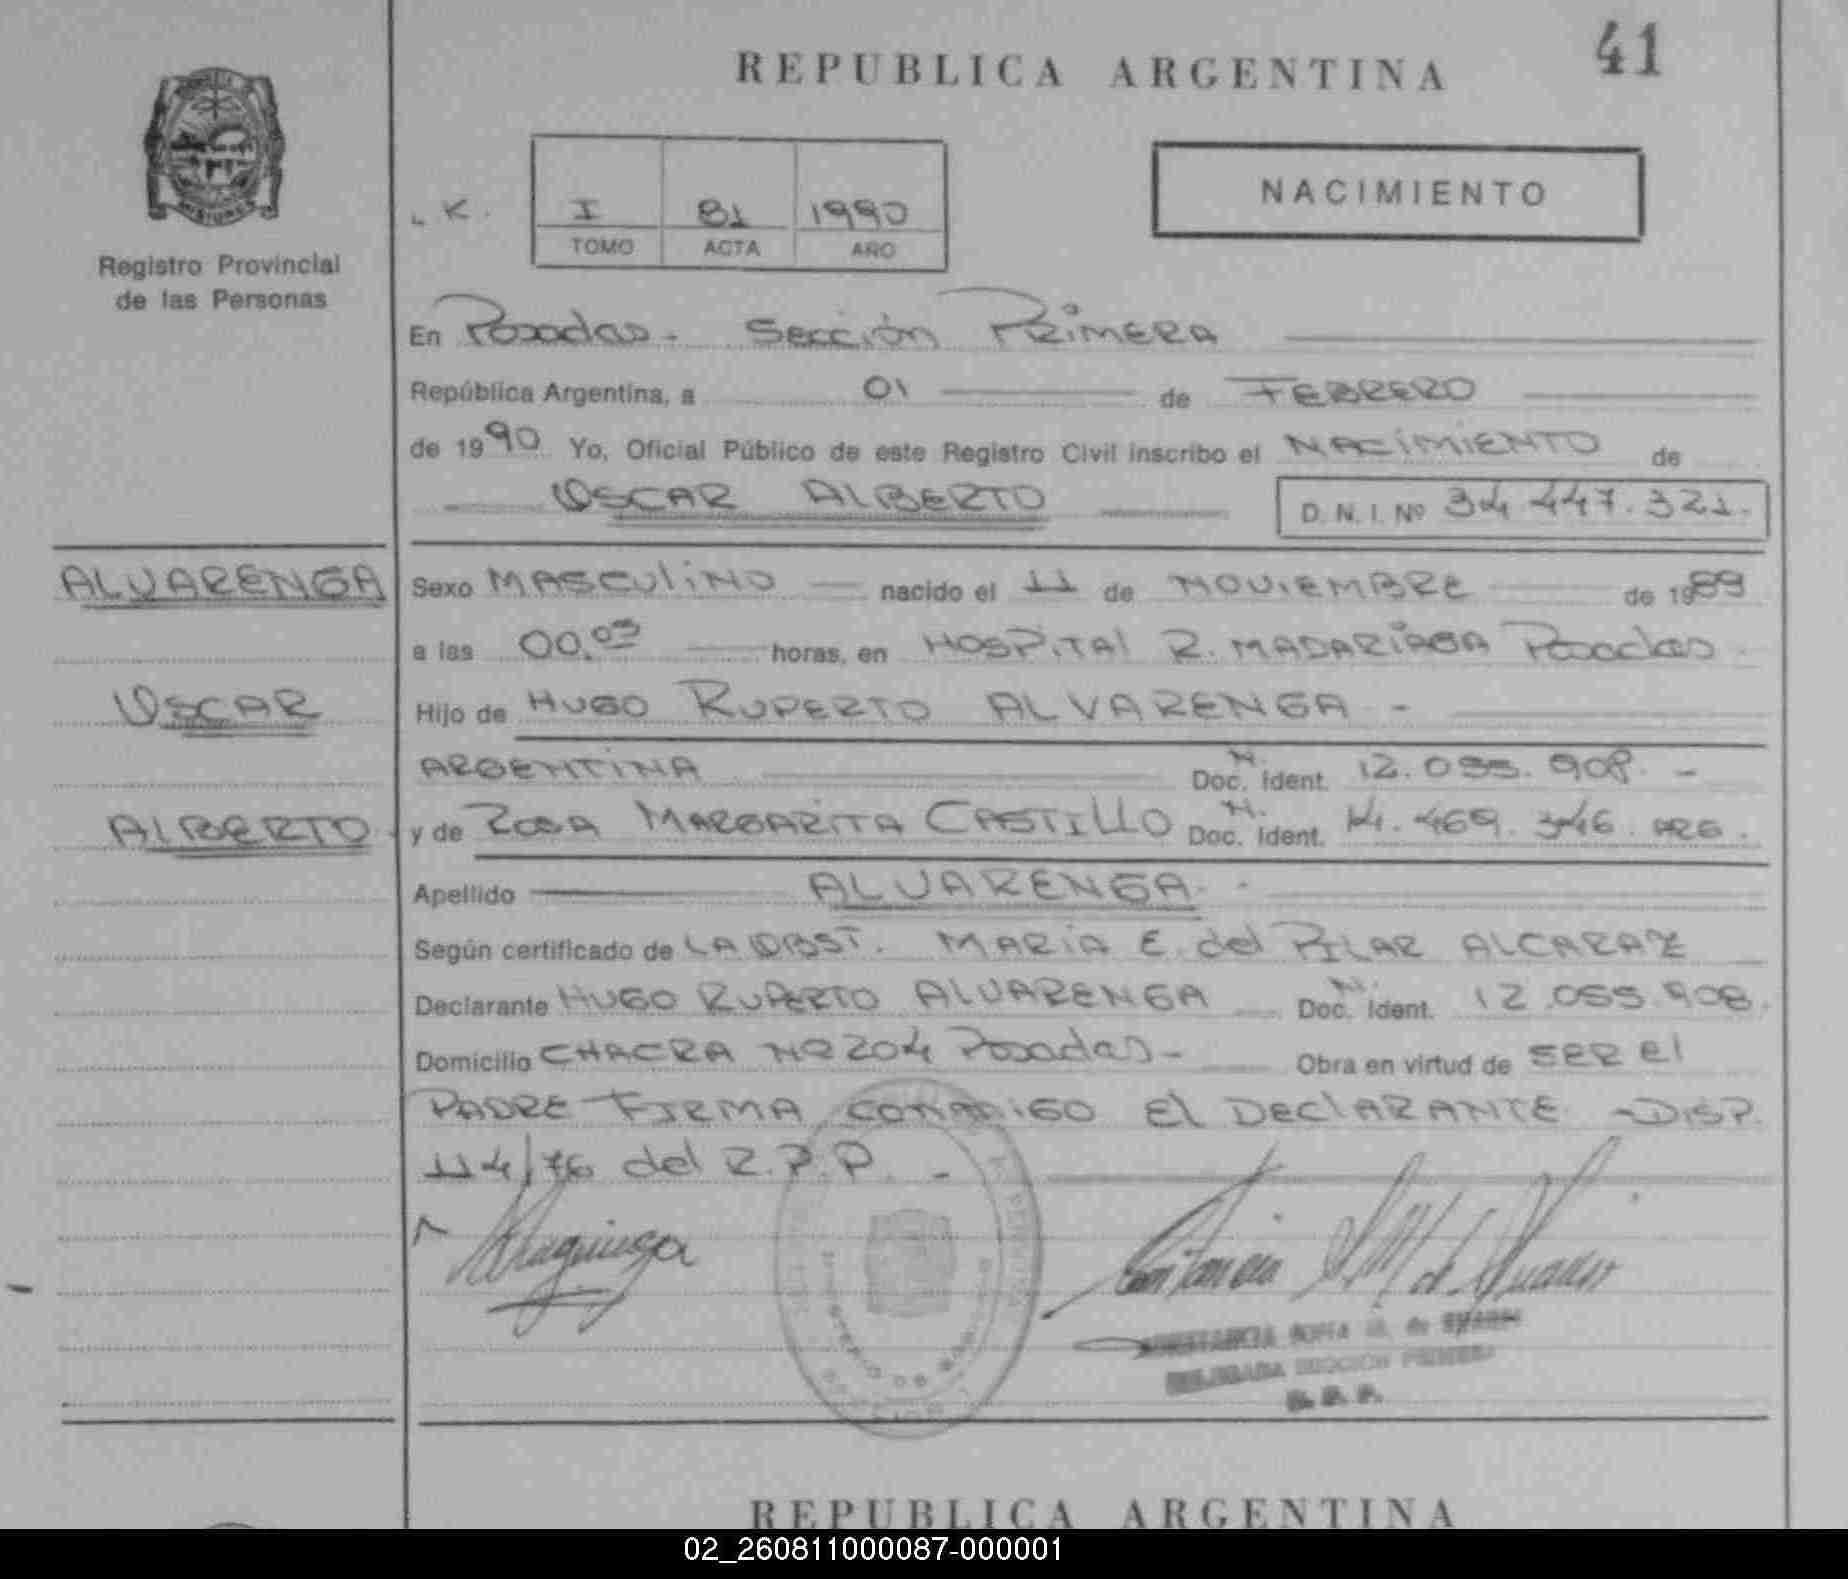 41
REPUBLICA ARGENTINA
Registro Provincial
de las Personas
L K.
I 81 1990
TOMO ACTA AÑO
NACIMIENTO
En Posadas - Sección Primera
República Argentina, a 01 de FEBRERO
de 1990 Yo, Oficial Público de este Registro Civil inscribo el NACIMIENTO de
OSCAR ALBERTO D. N. I. Nº 34.447.321.
ALVARENGA
OSCAR
ALBERTO
Sexo MASCULINO nacido el 11 de NOVIEMBRE de 1989
a las 00.03 horas, en HOSPITAL R. MADARIAGA Posadas
Hijo de HUGO RUPERTO ALVARENGA -
ARGENTINA N. Doc. Ident. 12.055.908. -
y de ROSA MARGARITA CASTILLO N. Doc. Ident. 14.469.346 ARG.
Apellido ALVARENGA. -
Según certificado de LA OBST. MARIA E. del PILAR ALCARAZ
Declarante HUGO RUPERTO ALVARENGA N. Doc. Ident. 12.055.908.
Domicilio CHACRA Nº 204 Posadas - Obra en virtud de SER El
PADRE FIRMA CONMIGO El DEClARANTE - DISP.
114/76 del R.P.P. -
DELEGADA SECCION PRIMERA
R. P. P.
REPUBLICA ARGENTINA
02_260811000087-000001